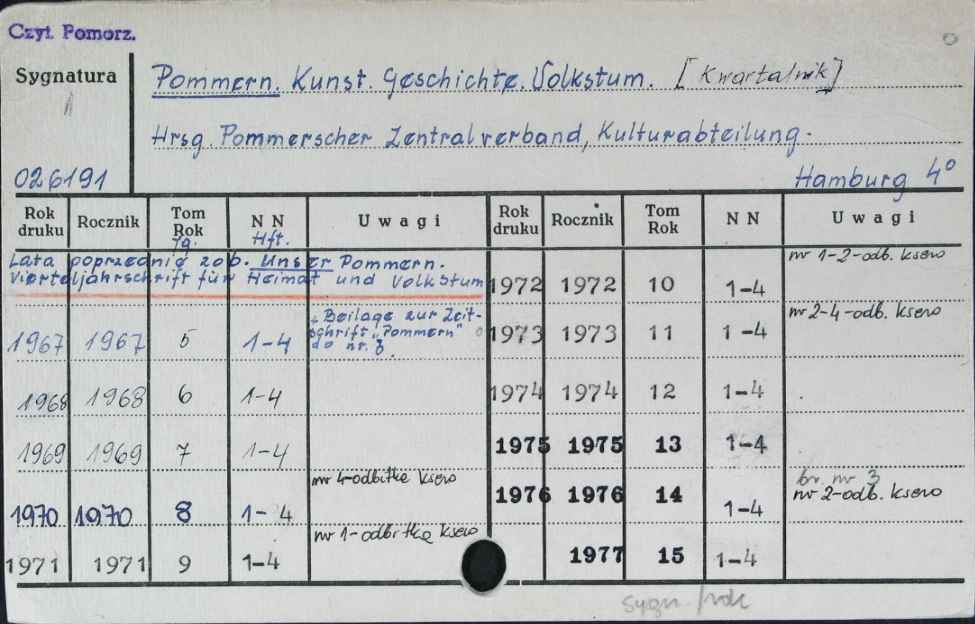 Czyt. Pomorz.
Sygnatura
Pommern. Kunst. Geschichte. Volkstum. [Kwartalnik]
Hrsg. Pommerscher Zentralverband, Kulturabteilung.
026191
Hamburg 4°
Rok druku Rocznik Tom Rok Jg. N N Hft. Uwagi Rok druku Rocznik Tom Rok N N Uwagi
Lata poprzednie zob. Unser Pommern.
Vierteljahrschrift für Heimat und Volkstum
1967 1967 5 1-4 "Beilage zur Zeit-
schrift "Pommern"
do nr. 3
1968 1968 6 1-4
1969 1969 7 1-4
1970 1970 8 1-4 nr 4-odbitka ksero
1971 1971 9 1-4 nr 1-odbitka ksero
1972 1972 10 1-4 nr 1-2-odb. ksero
1973 1973 11 1-4 nr 2-4-odb. ksero
1974 1974 12 1-4
1975 1975 13 1-4
1976 1976 14 1-4 br. nr 3
nr 2-odb. ksero
1977 15 1-4
sygn. /rok